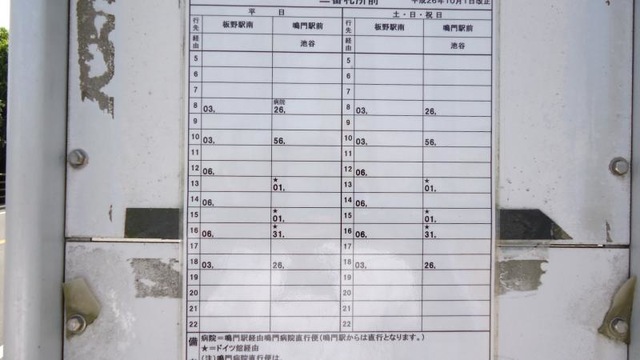 二番札所前 平成26年10月1日改正
平日 土・日・祝日
行先 板野駅南 鳴門駅前 行先 板野駅南 鳴門駅前
経由 池谷 経由 池谷
5 5
6 6
7 7
8 03. 病院 26. 8 03. 26.
9 9
10 03. 56. 10 03. 56.
11 11
12 06. 12 06.
13 ★01. 13 ★01.
14 06. 14 06.
15 ★01. 15 ★01.
16 06. ★31. 16 06. ★31.
17 17
18 03. 26. 18 03. 26.
19 19
20 20
21 21
22 22
備 病院=鳴門駅経由鳴門病院直行便(鳴門駅からは直行となります。)
★=ドイツ館経由
(注)鳴門病院直行便は、